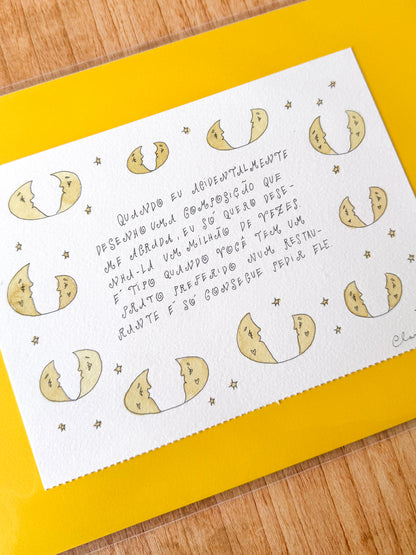 QUANDO EU ACIDENTALMENTE
DESENHO UMA COMPOSIÇÃO QUE
ME AGRADA, EU SÓ QUERO DESE-
NHÁ-LA UM MILHÃO DE VEZES
É TIPO QUANDO VOCÊ TEM UM
PRATO PREFERIDO NUM RESTAU-
RANTE E SÓ CONSEGUE PEDIR ELE.